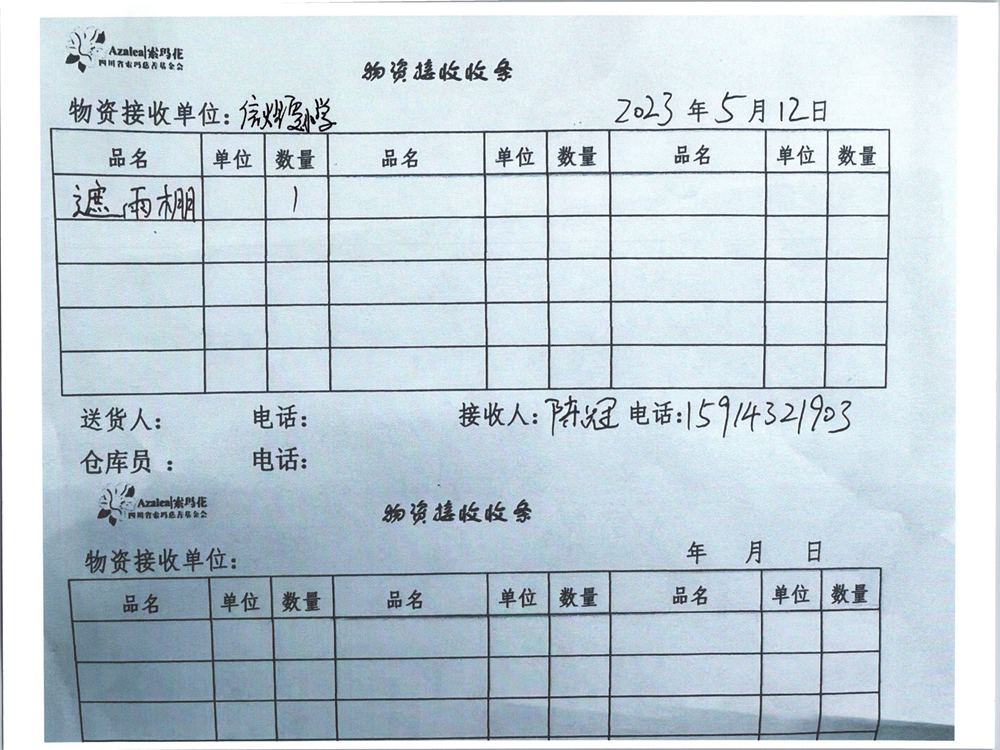 Azalea|索玛花
四川省索玛慈善基金会
物资接收收条
物资接收单位: 小学 2023 年 5 月 12 日
品名 单位 数量 品名 单位 数量 品名 单位 数量
遮雨棚 1
送货人: 电话: 接收人: 陈冠 电话: 15914321903
仓库员 : 电话:
Azalea|索玛花
四川省索玛慈善基金会
物资接收收条
物资接收单位: 年 月 日
品名 单位 数量 品名 单位 数量 品名 单位 数量